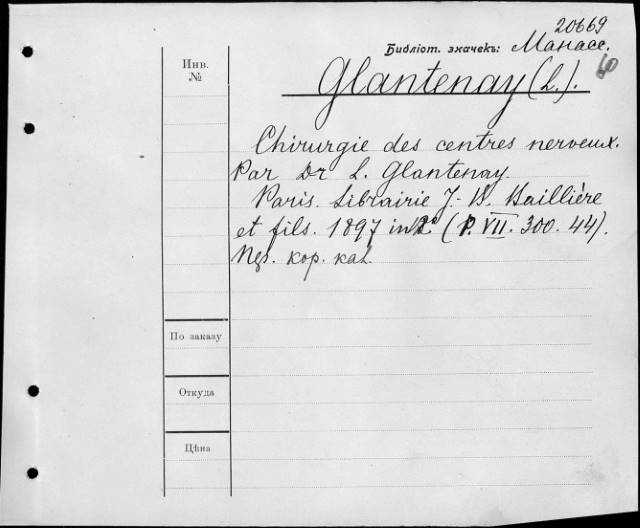 20669
Библіот. значекъ: Манасе.
Инв.
№
Glantenay (L.).
Chirurgie des centres nerveux.
Par Dr L. Glantenay.
Paris. Librairie J.-B. Baillière
et fils. 1897 in 12º (P. VII. 300. 44).
кор. кал.
По заказу
Откуда
Цѣна